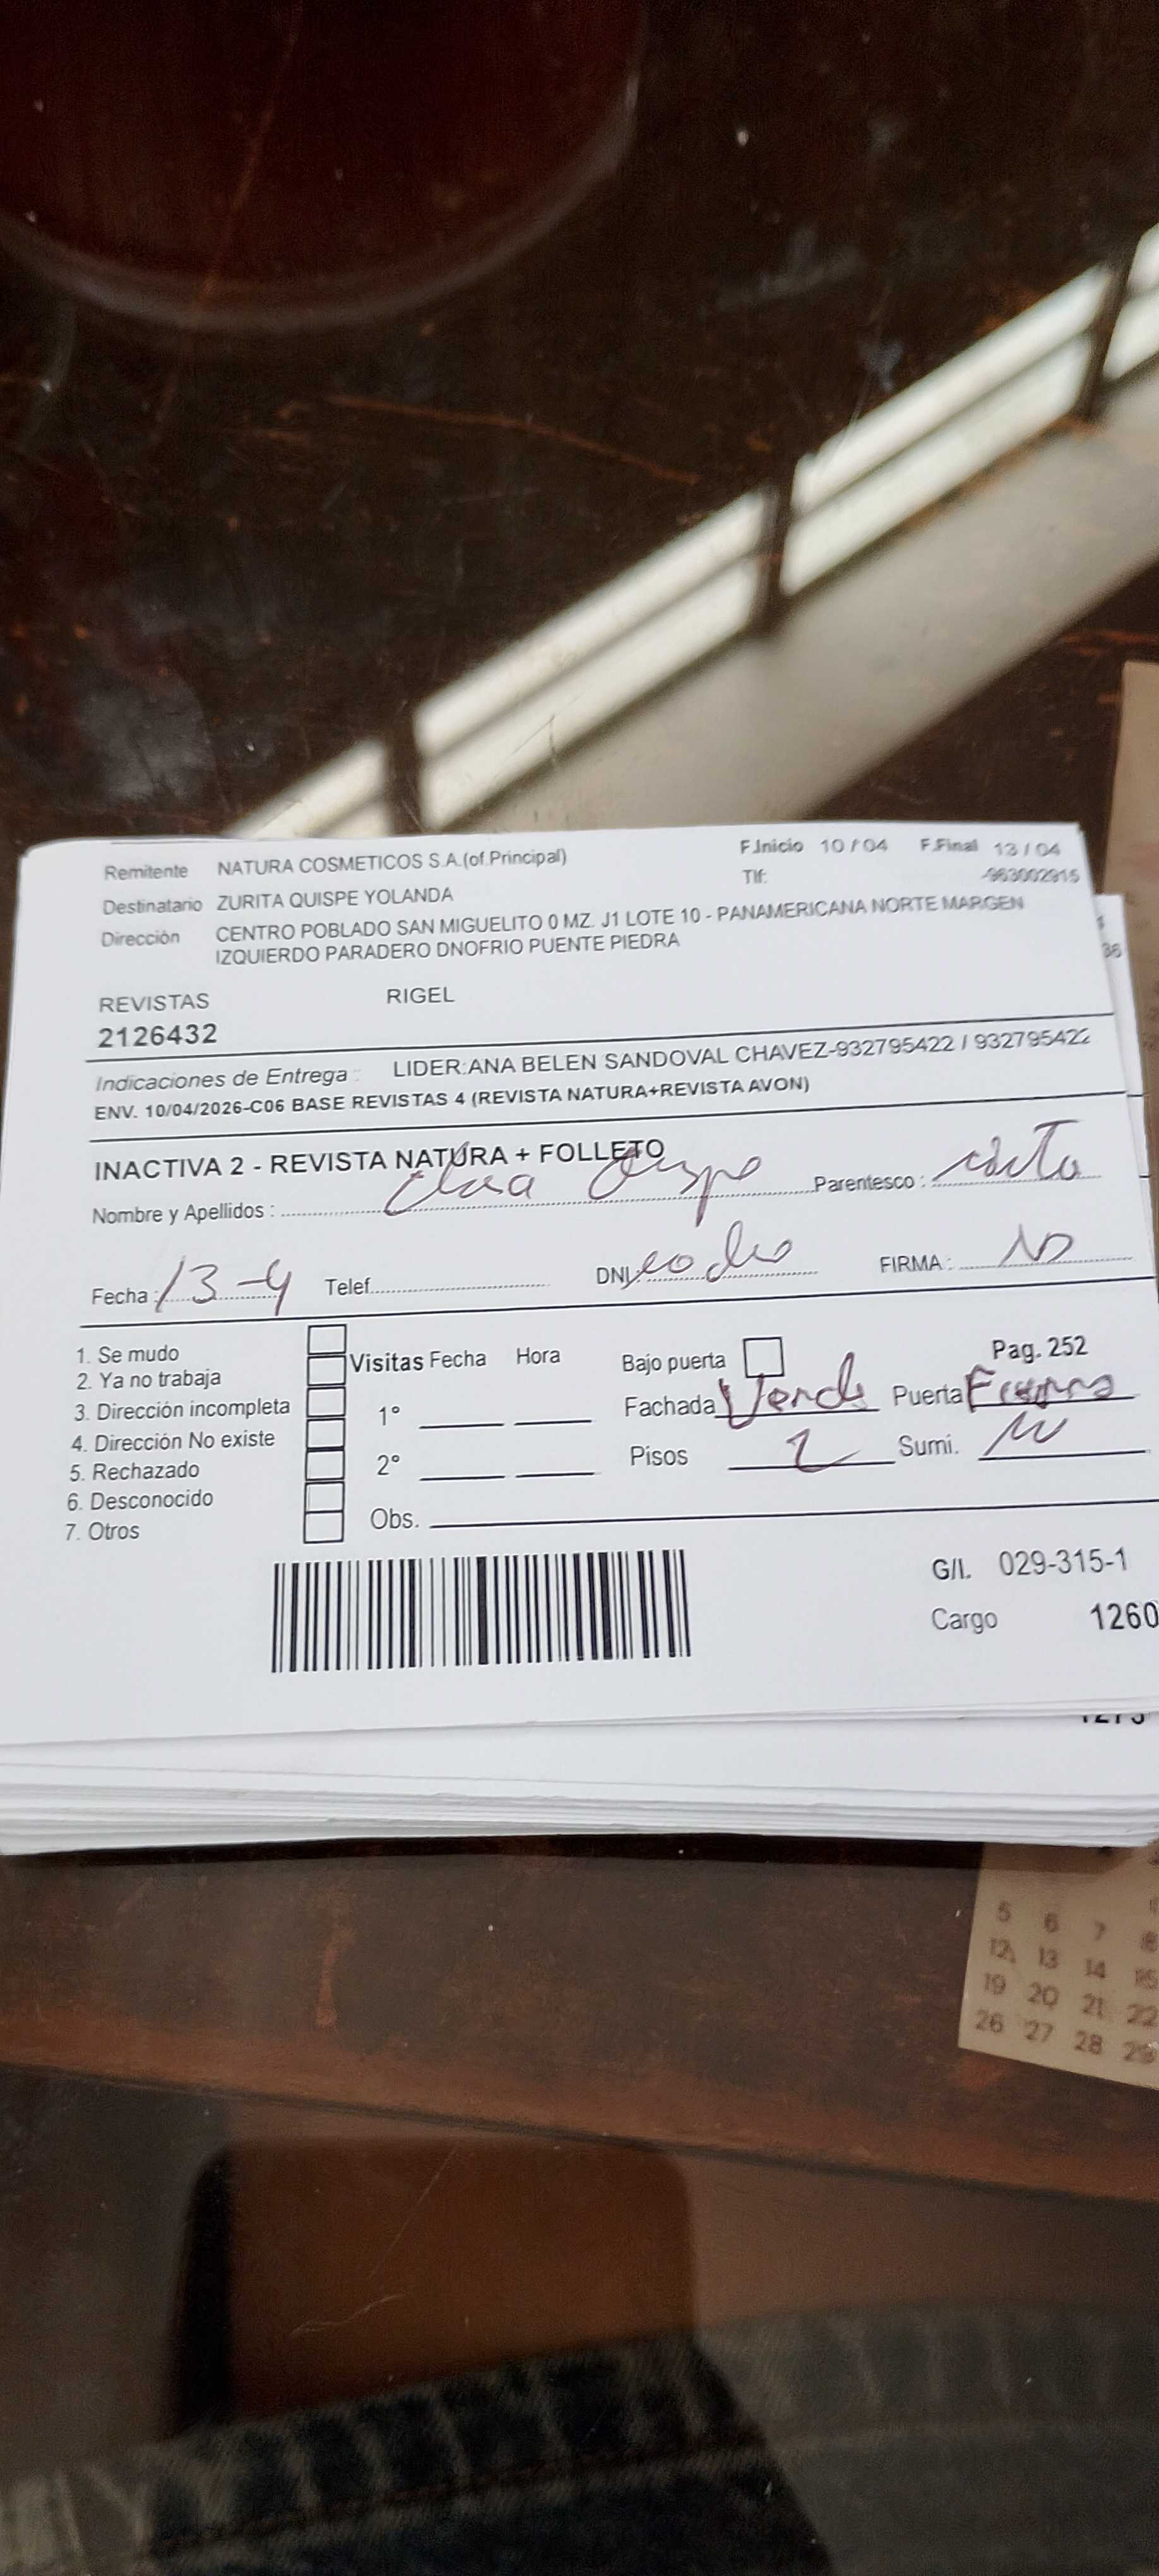 Remitente NATURA COSMETICOS S.A.(of.Principal) F.Inicio 10 / 04 F.Final 13 / 04
Destinatario ZURITA QUISPE YOLANDA Tlf: -963002915
Dirección CENTRO POBLADO SAN MIGUELITO 0 MZ. J1 LOTE 10 - PANAMERICANA NORTE MARGEN
IZQUIERDO PARADERO DNOFRIO PUENTE PIEDRA
REVISTAS RIGEL
2126432
Indicaciones de Entrega : LIDER:ANA BELEN SANDOVAL CHAVEZ-932795422 / 932795422
ENV. 10/04/2026-C06 BASE REVISTAS 4 (REVISTA NATURA+REVISTA AVON)
INACTIVA 2 - REVISTA NATURA + FOLLETO
Nombre y Apellidos : Parentesco :
Fecha : 13-4 Telef. DNI: FIRMA :
1. Se mudo
2. Ya no trabaja
3. Dirección incompleta
4. Dirección No existe
5. Rechazado
6. Desconocido
7. Otros
Visitas Fecha Hora
1°
2°
Obs.
Bajo puerta Pag. 252
Fachada Verde Puerta
Pisos 2 Sumi.
G/I. 029-315-1
Cargo 1260
5 6 7 8
12 13 14 15
19 20 21 22
26 27 28 29